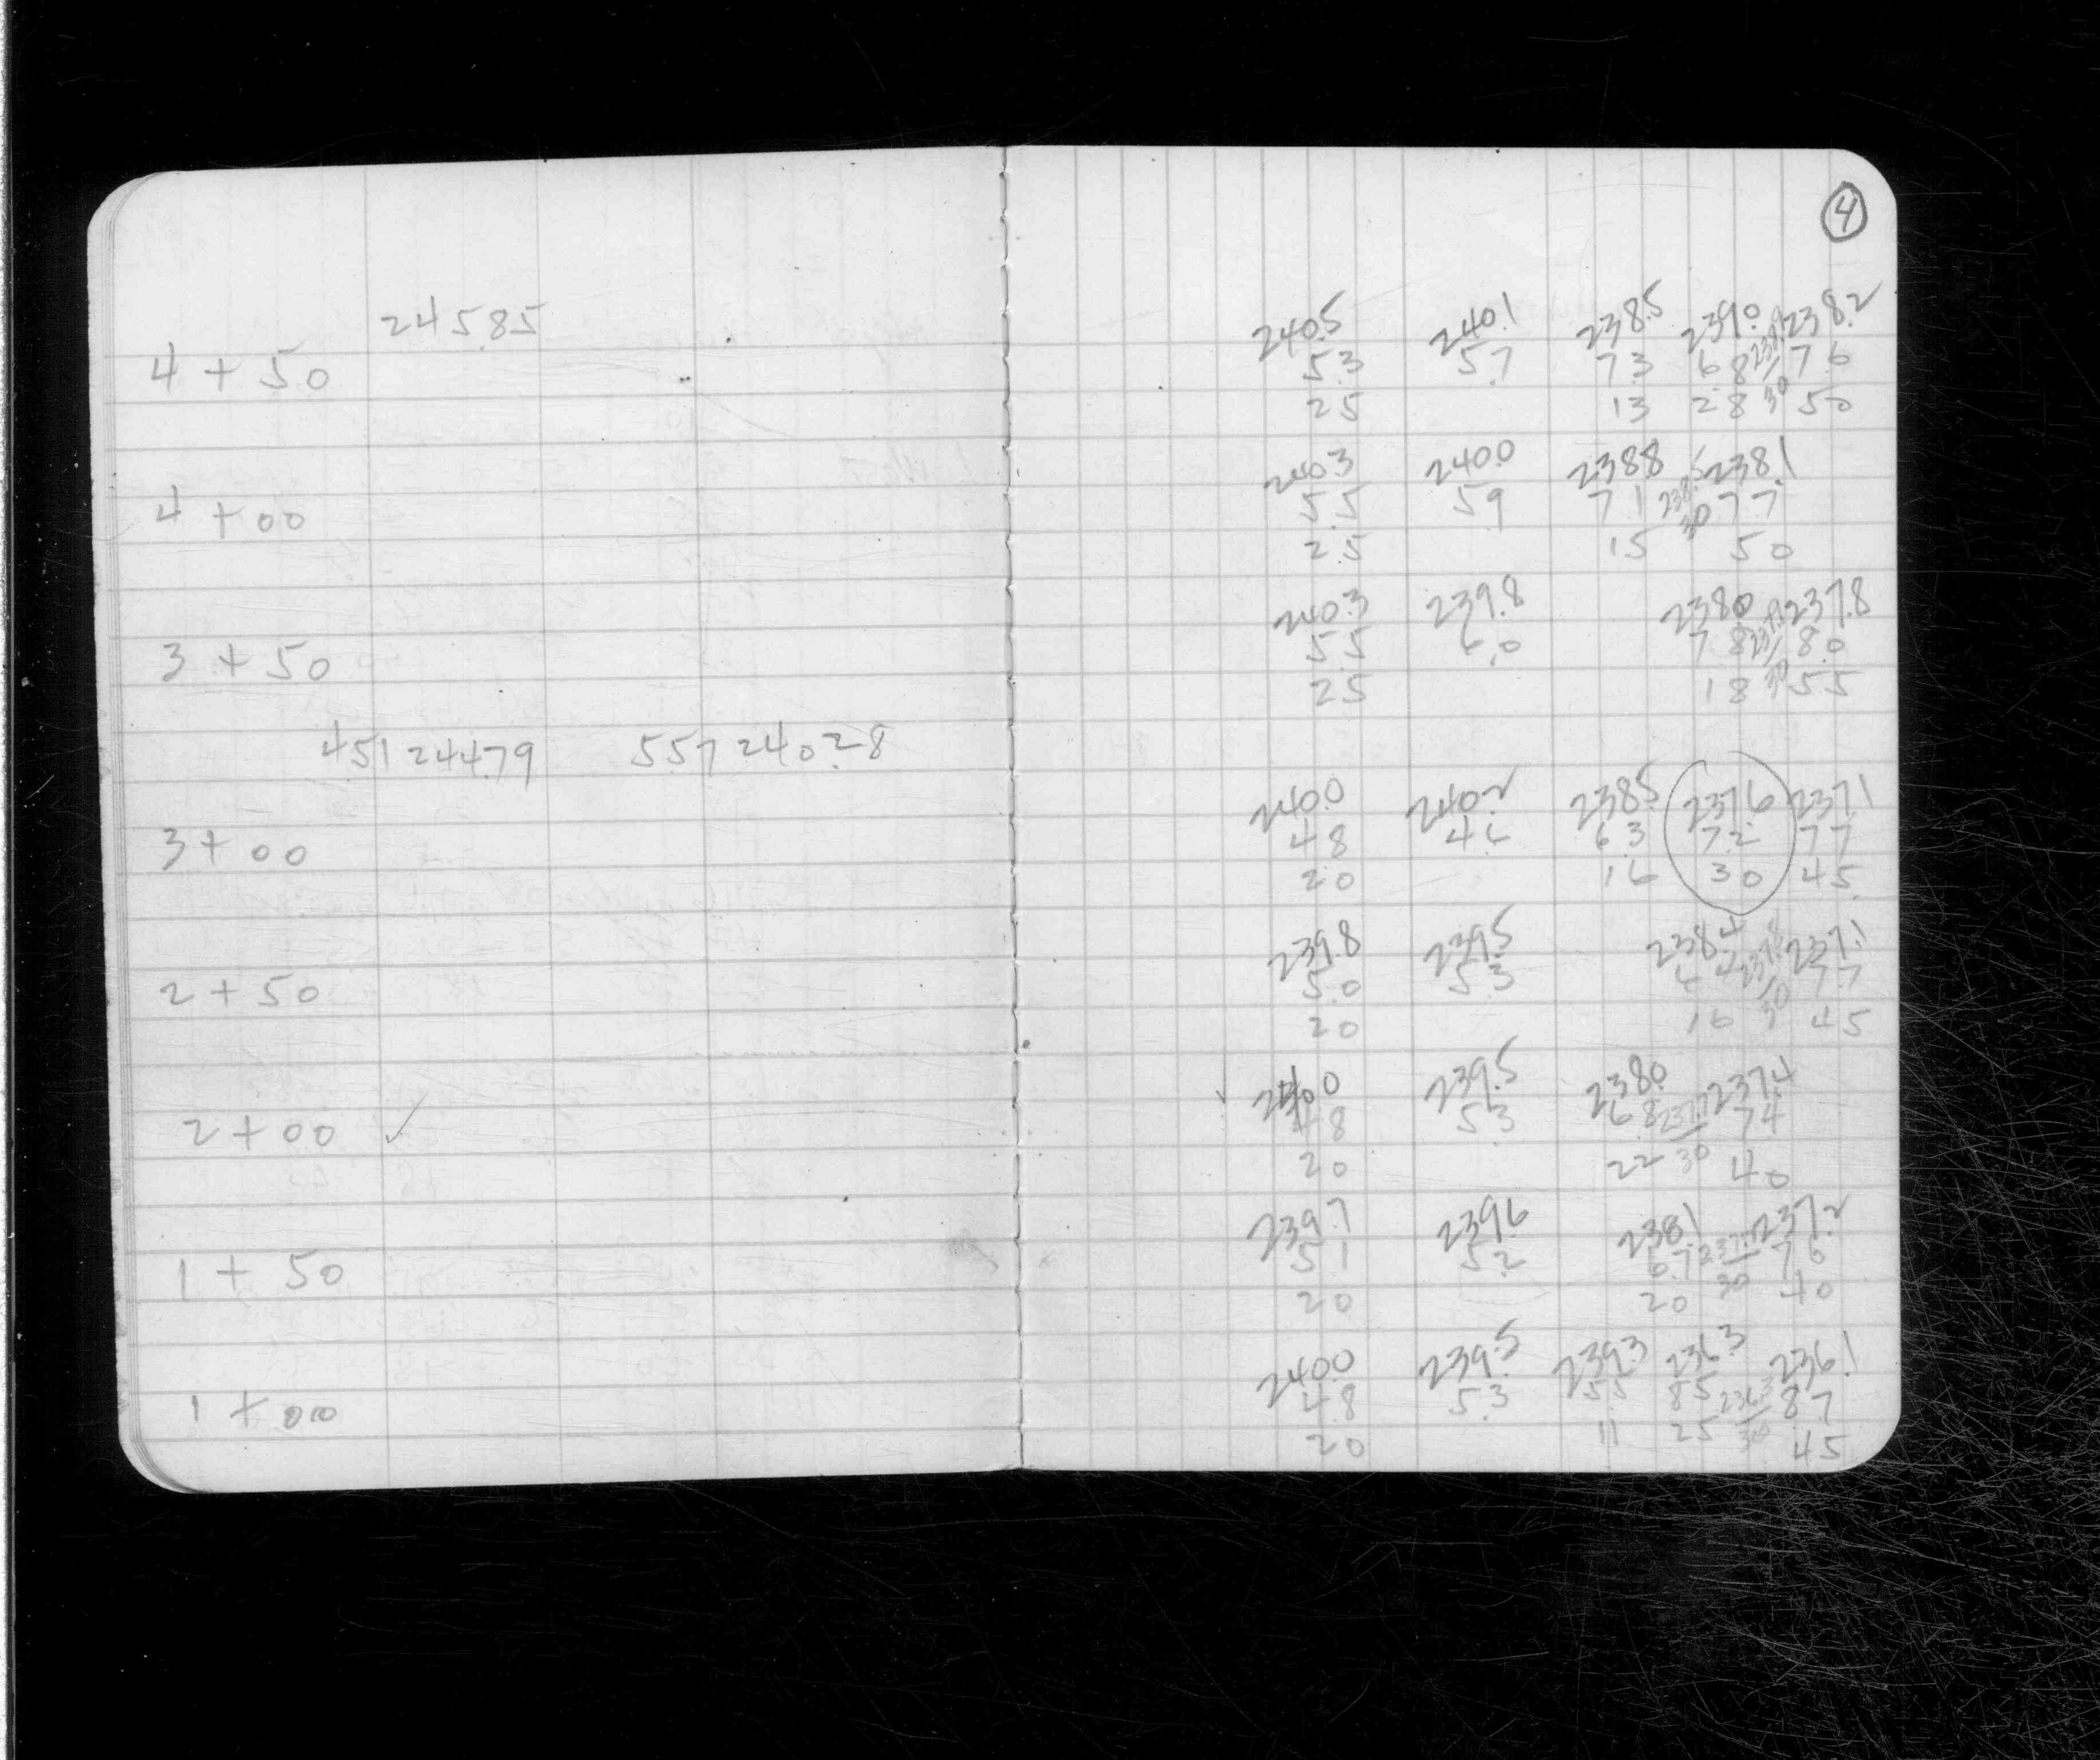 4
245.85
240.5 240.1 238.5 239.0 238.2
4 + 50 5.3 5.7 7.3 6.8 7.6
25 13 28 30 50
240.3 240.0 238.8 238.5 238.1
4 + 00 5.5 5.9 7.1 7.7
25 15 30 50
240.3 239.8 238.0 237.8
3 + 50 5.5 6.0 7.8 8.0
25 18 30 55
4.51 244.79 5.57 240.28
240.0 240.2 238.5 237.6 237.1
3 + 00 4.8 4.6 6.3 7.2 7.7
20 16 30 45
239.8 239.5 238.4 237.8 237.1
2 + 50 5.0 5.3 6.4 7.7
20 16 30 45
240.0 239.5 238.0 237.4
2 + 00 ✓ 4.8 5.3 6.8 237.7 7.4
20 22 30 40
239.7 239.6 238.1 237.2
1 + 50 5.1 5.2 6.7 7.6
20 20 30 40
240.0 239.5 239.3 236.3 236.1
1 + 00 4.8 5.3 5.5 8.5 8.7
20 11 25 45